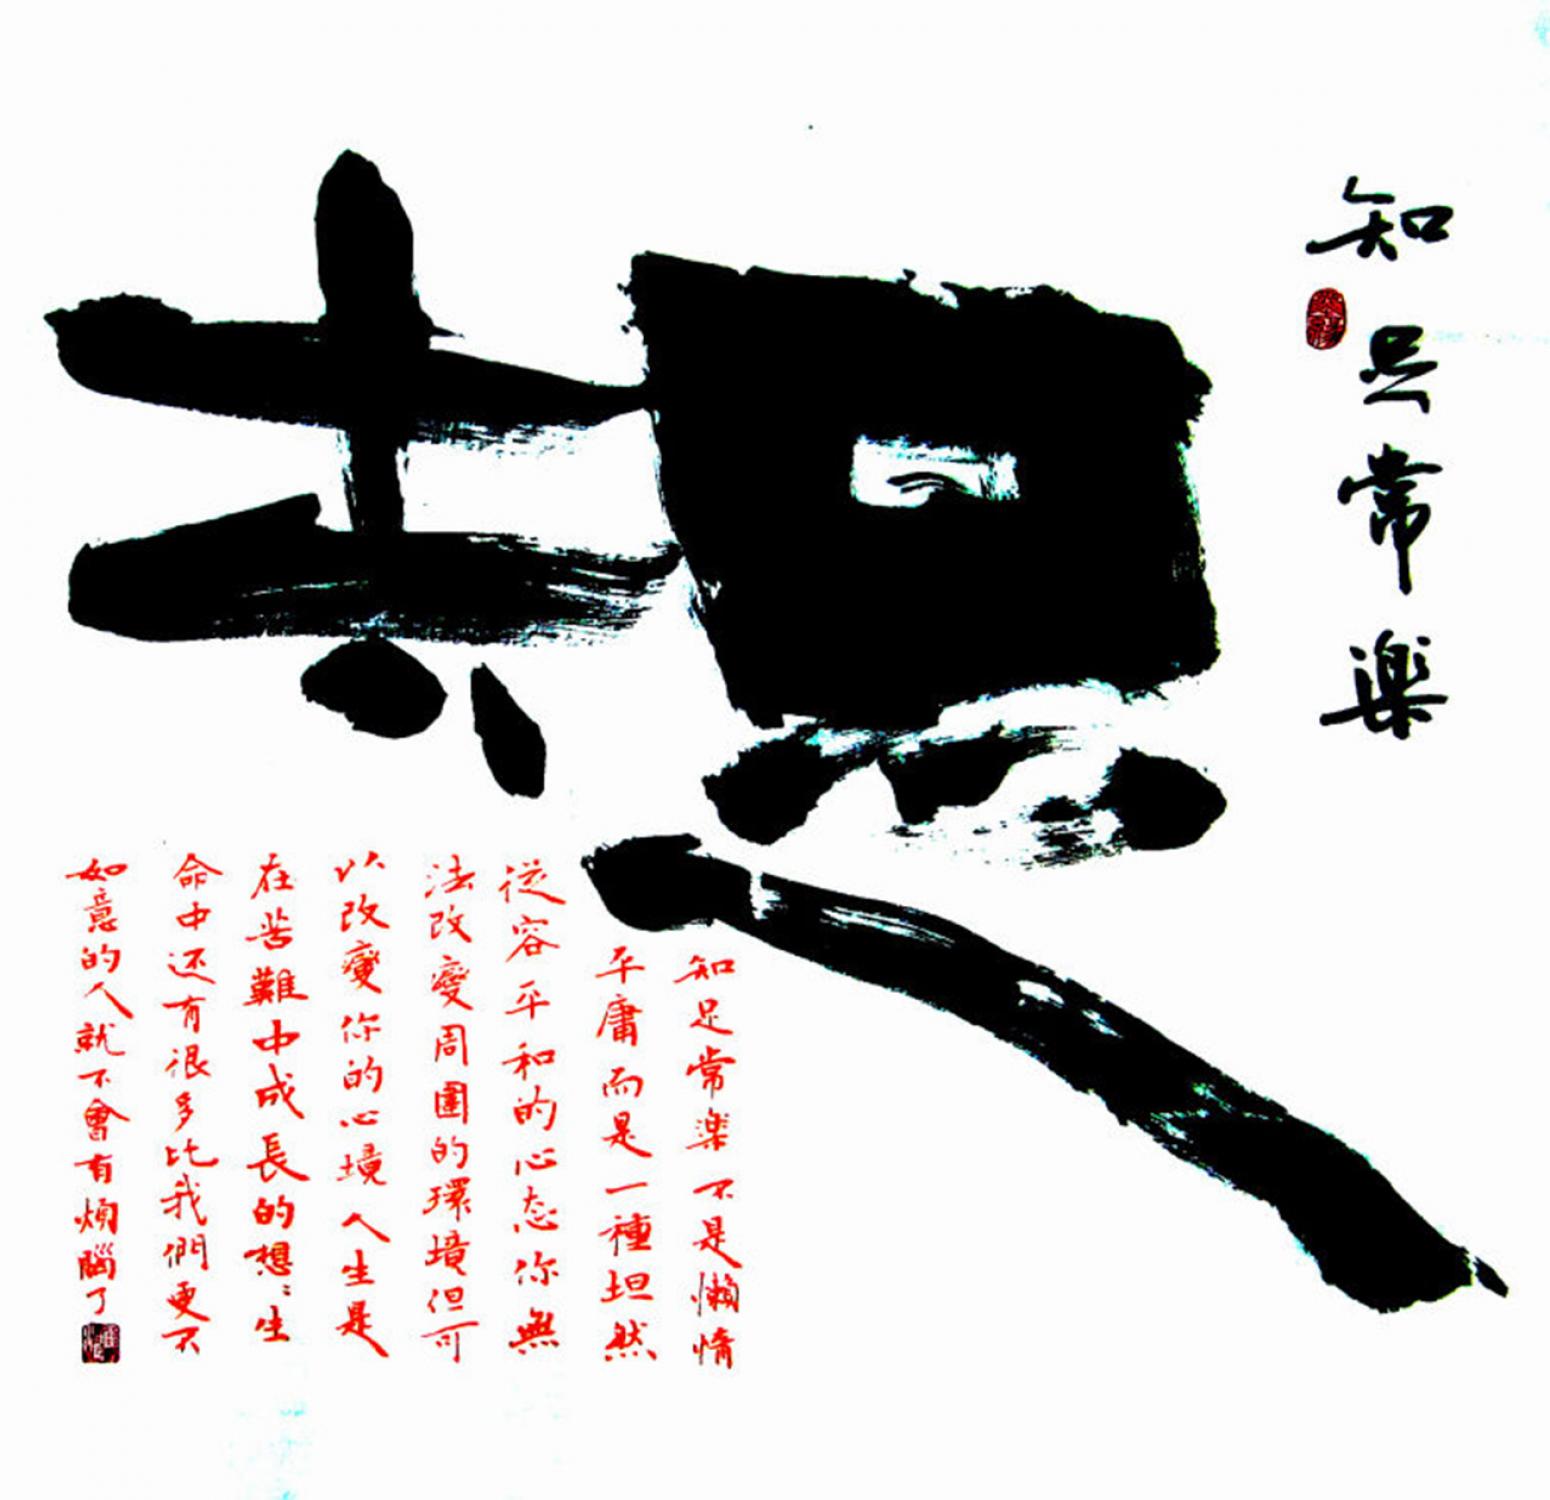 知足常樂
知足常楽不是懶惰
平庸而是一種坦然
從容平和的心态你無
法改變周圍的環境但可
以改變你的心境人生是
在苦難中成長的想想生
命中还有很多比我們更不
如意的人就不會有煩腦了